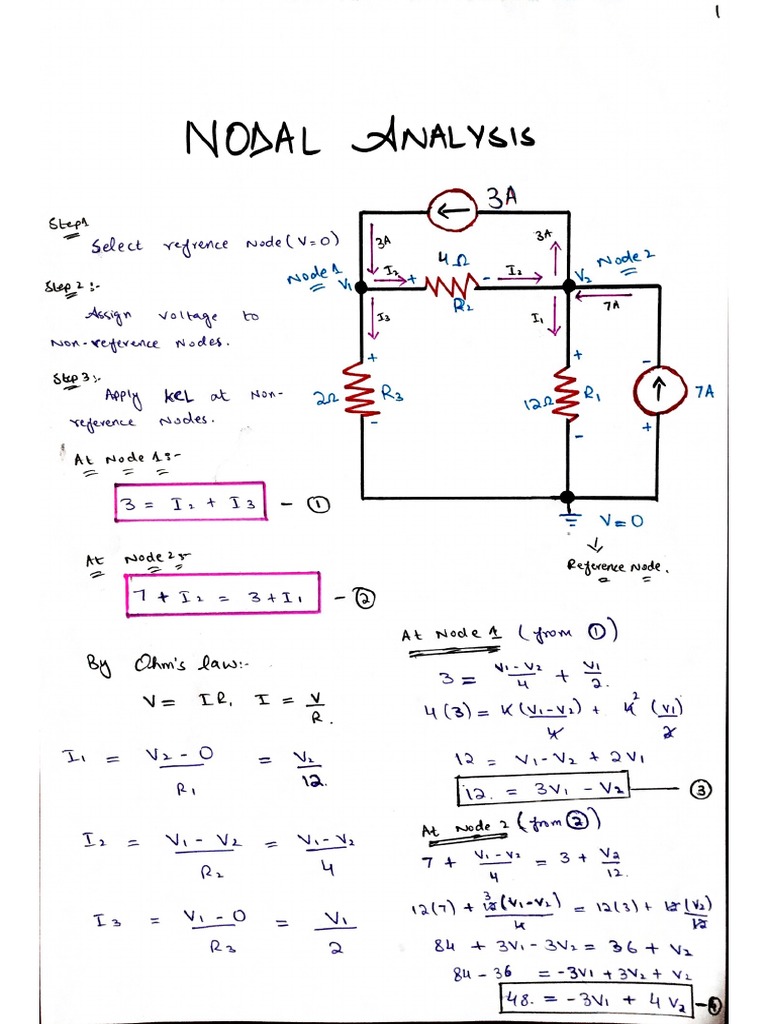 1
NODAL ANALYSIS
Step1
Select refrence Node (V=0)
Step 2 :-
Assign voltage to
Non-reference Nodes.
Step 3:-
Apply KCL at Non-
reference Nodes.
3A
3A
3A
4Ω
Node 1
V1
I2
+
-
I2
R2
V2
Node 2
7A
I3
I1
+
2Ω
R3
-
+
12Ω
R1
-
-
7A
+
V=0
Reference Node.
At Node 1:-
3 = I2 + I3 - ①
At Node 2:-
7 + I2 = 3 + I1 - ②
By Ohm's law:-
V = IR, I = V/R.
I1 = V2 - 0/R1 = V2/12.
I2 = V1 - V2/R2 = V1 - V2/4
I3 = V1 - 0/R3 = V1/2
At Node 1 (from ①)
3 = V1 - V2/4 + V1/2.
4(3) = 4(V1 - V2)/4 + 4 2 (V1)/2
12 = V1 - V2 + 2V1
12. = 3V1 - V2 — ③
At Node 2 (from ②)
7 + V1 - V2/4 = 3 + V2/12.
12(7) + 3 12(V1 - V2)/4 = 12(3) + 12(V2)/12
84 + 3V1 - 3V2 = 36 + V2
84 - 36 = -3V1 + 3V2 + V2
48. = -3V1 + 4V2 - ④